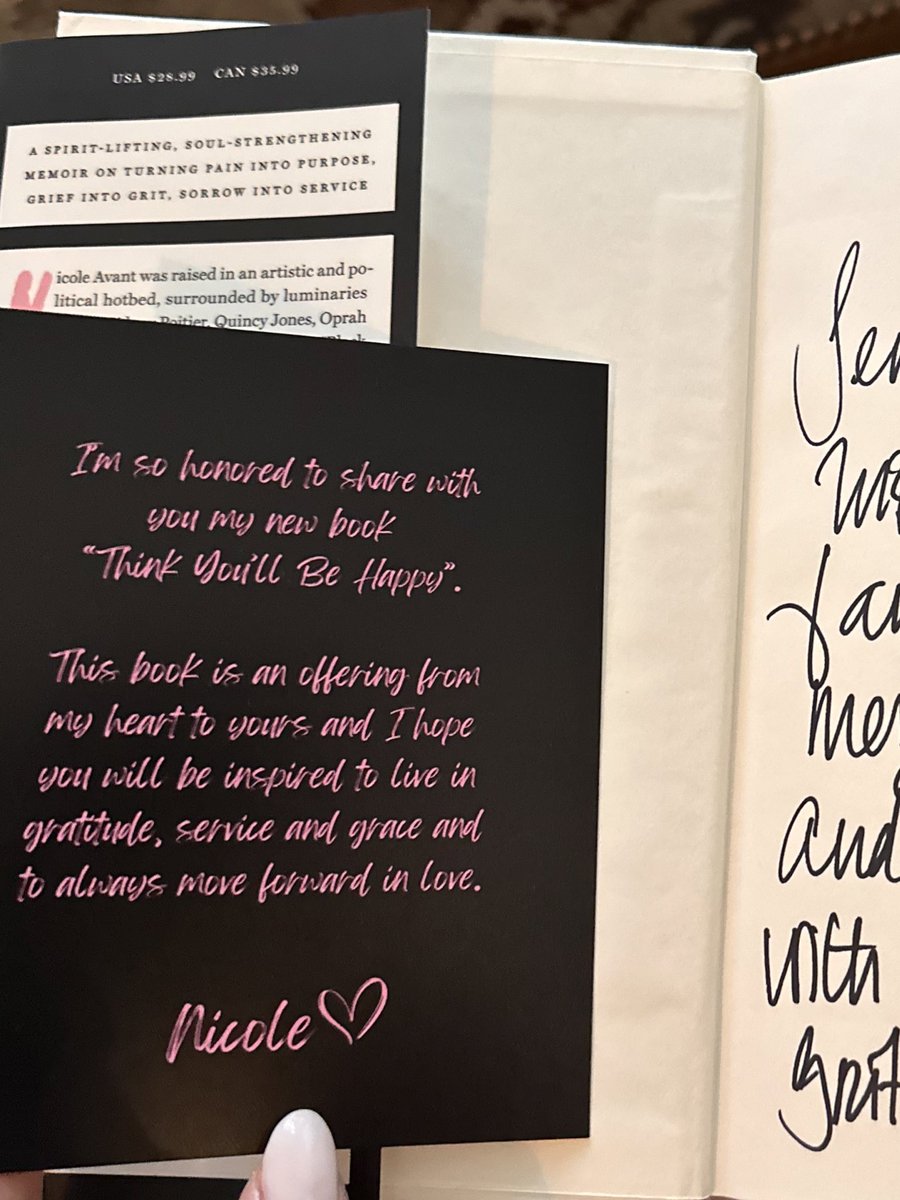 USA $28.99 CAN $35.99
A SPIRIT-LIFTING, SOUL-STRENGTHENING
MEMOIR ON TURNING PAIN INTO PURPOSE,
GRIEF INTO GRIT, SORROW INTO SERVICE
Nicole Avant was raised in an artistic and po-
litical hotbed, surrounded by luminaries
Poitier, Quincy Jones, Oprah
I'm so honored to share with
you my new book
"Think You'll Be Happy".
This book is an offering from
my heart to yours and I hope
you will be inspired to live in
gratitude, service and grace and
to always move forward in love.
Nicole
and
with